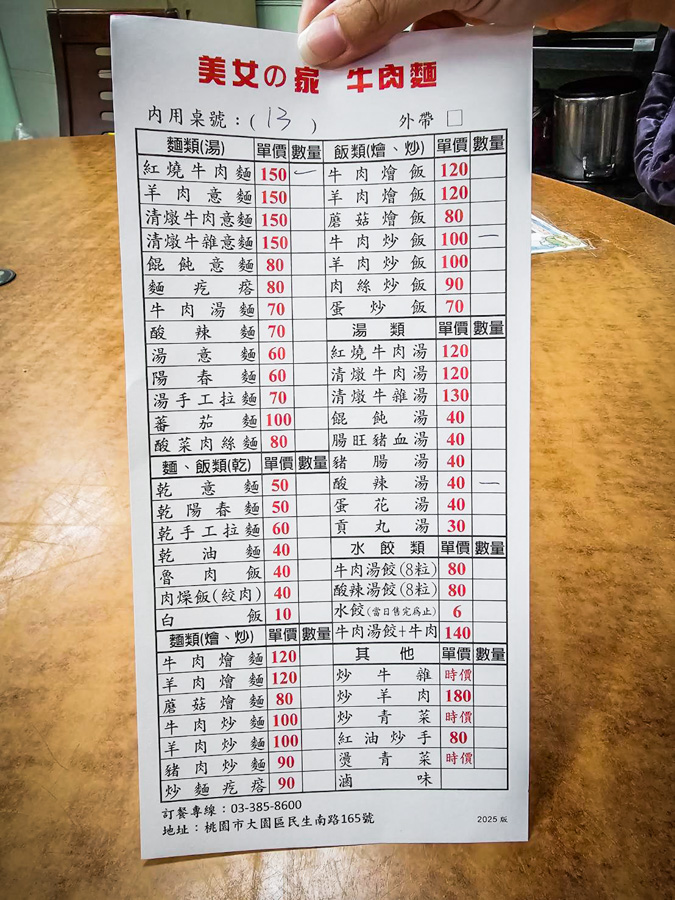 美女の家 牛肉麵
內用桌號：( 13 ) 外帶 □
麵類(湯) 單價 數量
紅燒牛肉麵 150 一
羊肉意麵 150
清燉牛肉意麵 150
清燉牛雜意麵 150
餛飩意麵 80
麵疙瘩 80
牛肉湯麵 70
酸辣麵 70
湯意麵 60
陽春麵 60
湯手工拉麵 70
蕃茄麵 100
酸菜肉絲麵 80
麵、飯類(乾) 單價 數量
乾意麵 50
乾陽春麵 50
乾手工拉麵 60
乾油麵 40
魯肉飯 40
肉燥飯(絞肉) 40
白飯 10
麵類(燴、炒) 單價 數量
牛肉燴麵 120
羊肉燴麵 120
蘑菇燴麵 80
牛肉炒麵 100
羊肉炒麵 100
豬肉炒麵 90
炒麵疙瘩 90
飯類(燴、炒) 單價 數量
牛肉燴飯 120
羊肉燴飯 120
蘑菇燴飯 80
牛肉炒飯 100 一
羊肉炒飯 100
肉絲炒飯 90
蛋炒飯 70
湯類 單價 數量
紅燒牛肉湯 120
清燉牛肉湯 120
清燉牛雜湯 130
餛飩湯 40
腸旺豬血湯 40
豬腸湯 40
酸辣湯 40 一
蛋花湯 40
貢丸湯 30
水餃類 單價 數量
牛肉湯餃(8粒) 80
酸辣湯餃(8粒) 80
水餃(當日售完為止) 6
牛肉湯餃+牛肉 140
其他 單價 數量
炒牛雜 時價
炒羊肉 180
炒青菜 時價
紅油炒手 80
燙青菜 時價
滷味
訂餐專線：03-385-8600
地址：桃園市大園區民生南路165號
2025 版